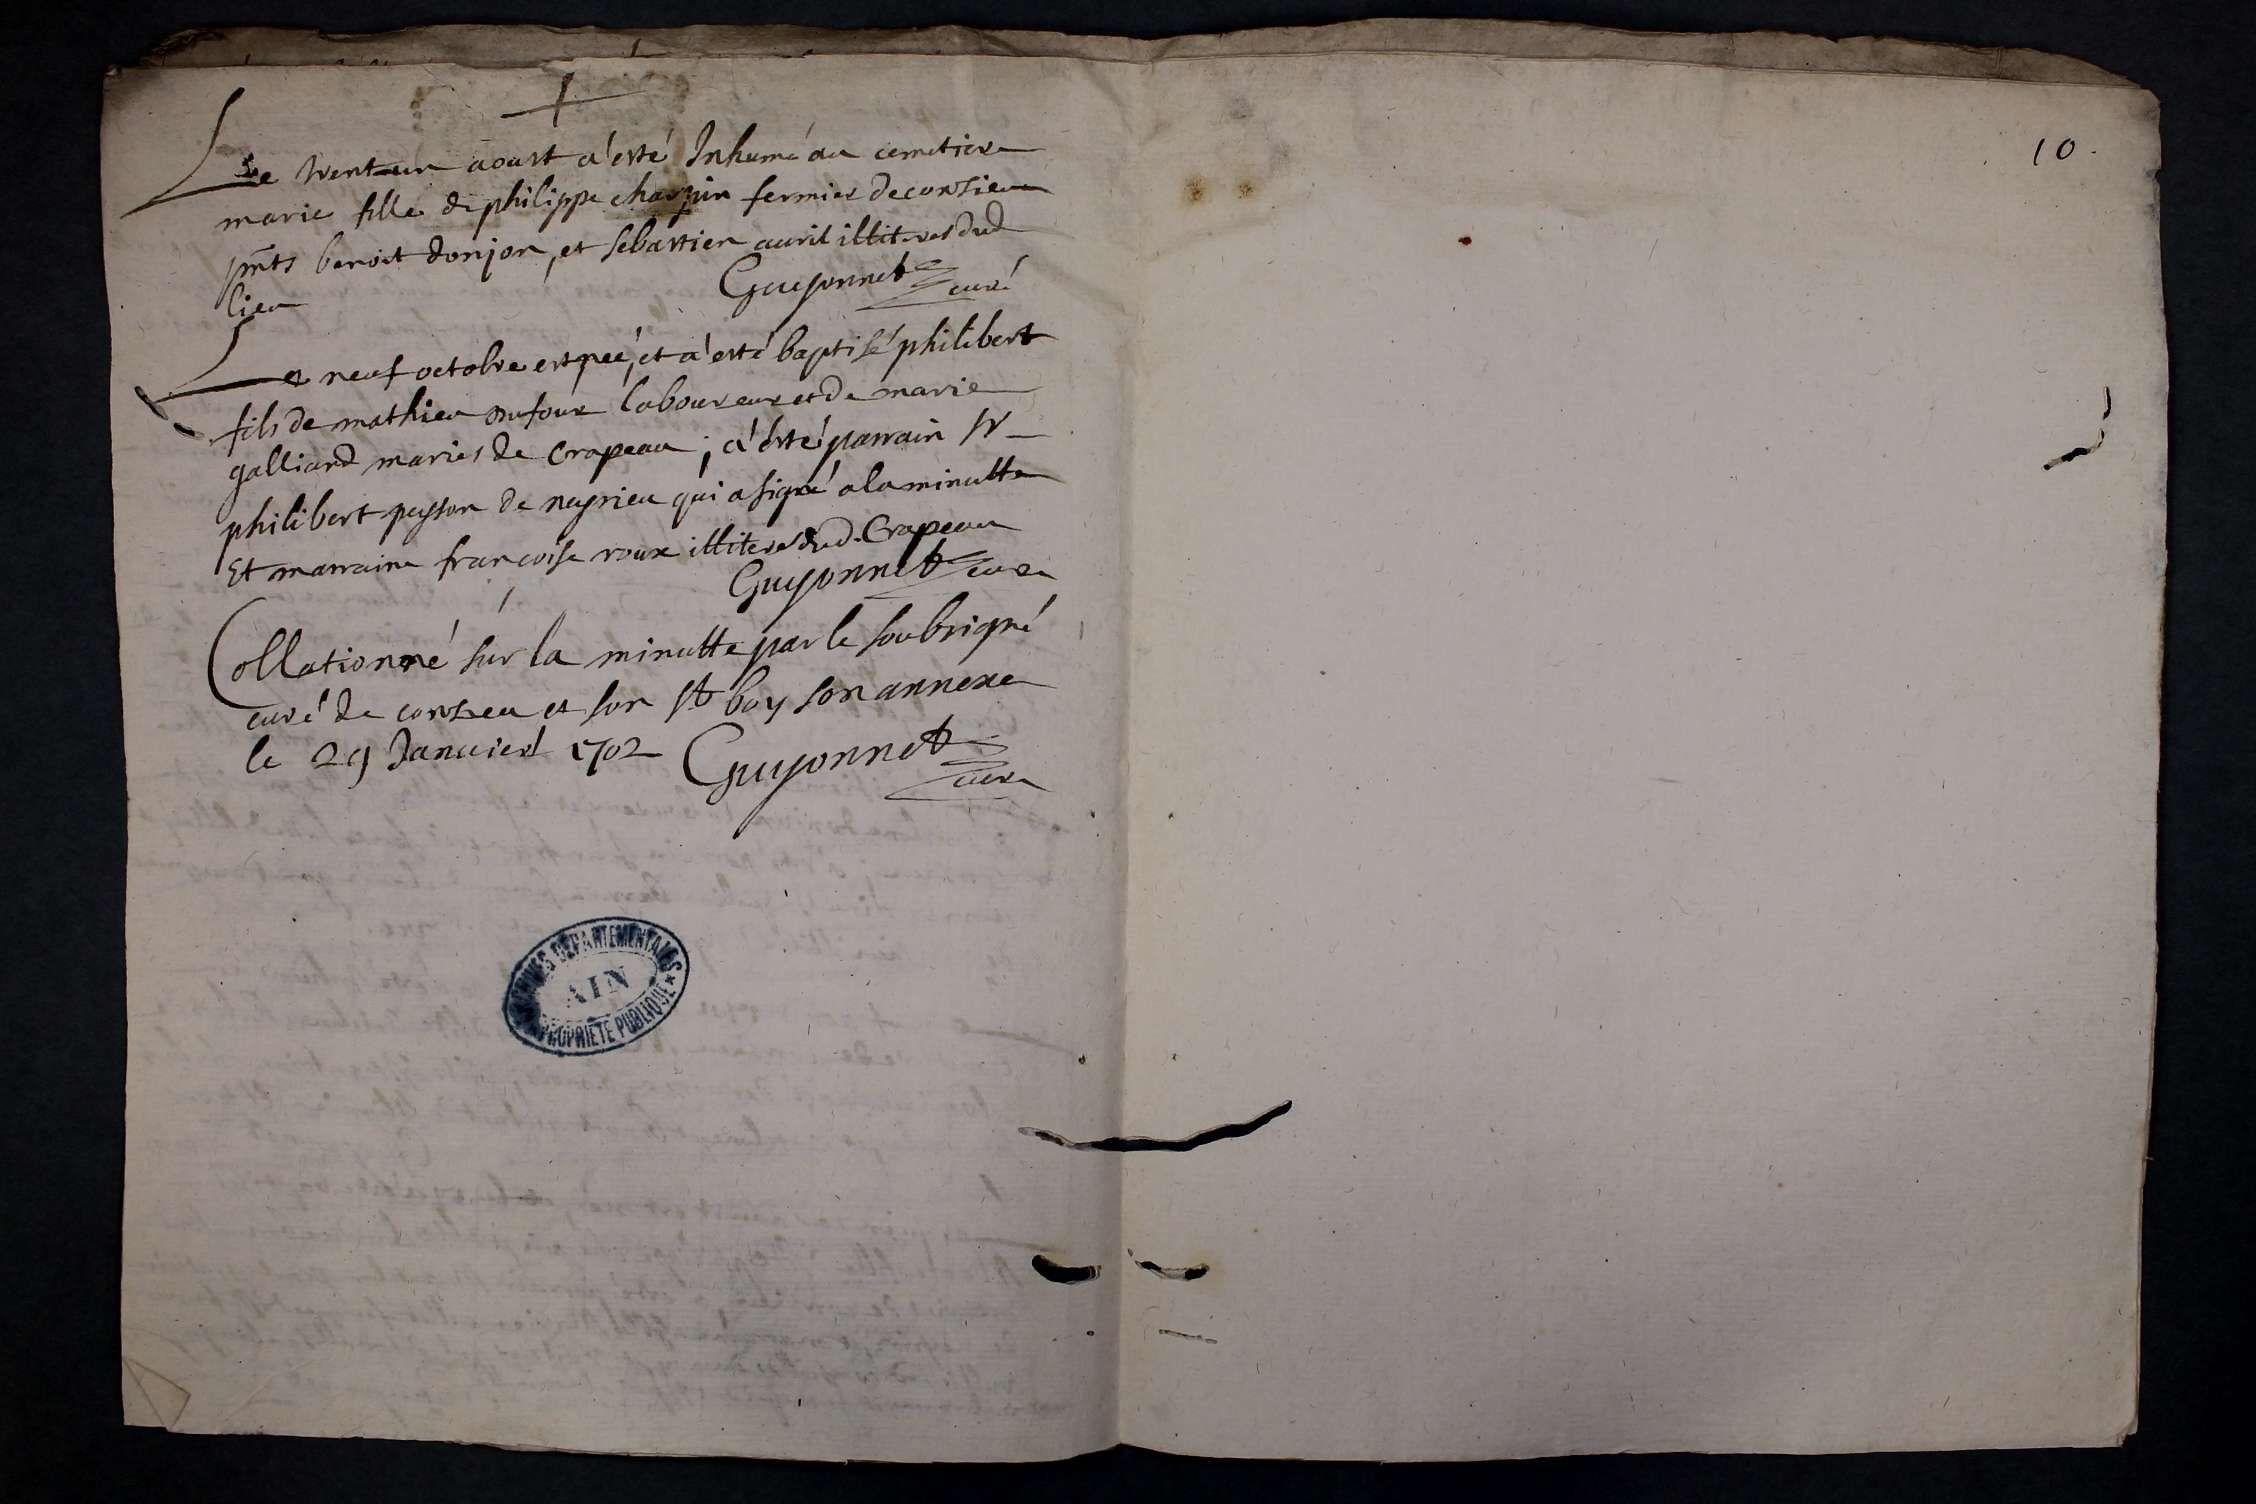 Le trent-un aoust a'esté Inhumé au cemetiere
marie fille de philippe charpin fermier de contieu
pnts benoit donjon, et sebastien auril illiteres dud
lieu Guyonnet curé
Le neuf octobre est née, et a'esté baptisé philibert
fils de mathieu dufour laboureur et de marie
galliand mariés de Crapeau, a'ésté parrain sr
philibert peyson de neyrieu qui a signé a la minutte
Et marraine francoise roux illitere dud. Crapeau
Guyonnet curé
Collationné sur la minutte par le soubsigné
curé de contieu et son st boy son annexe
le 29 Januier 1702 Guyonnet
curé
ARCHIVES DEPARTEMENTALES
AIN
PROPRIETE PUBLIQUE
10.